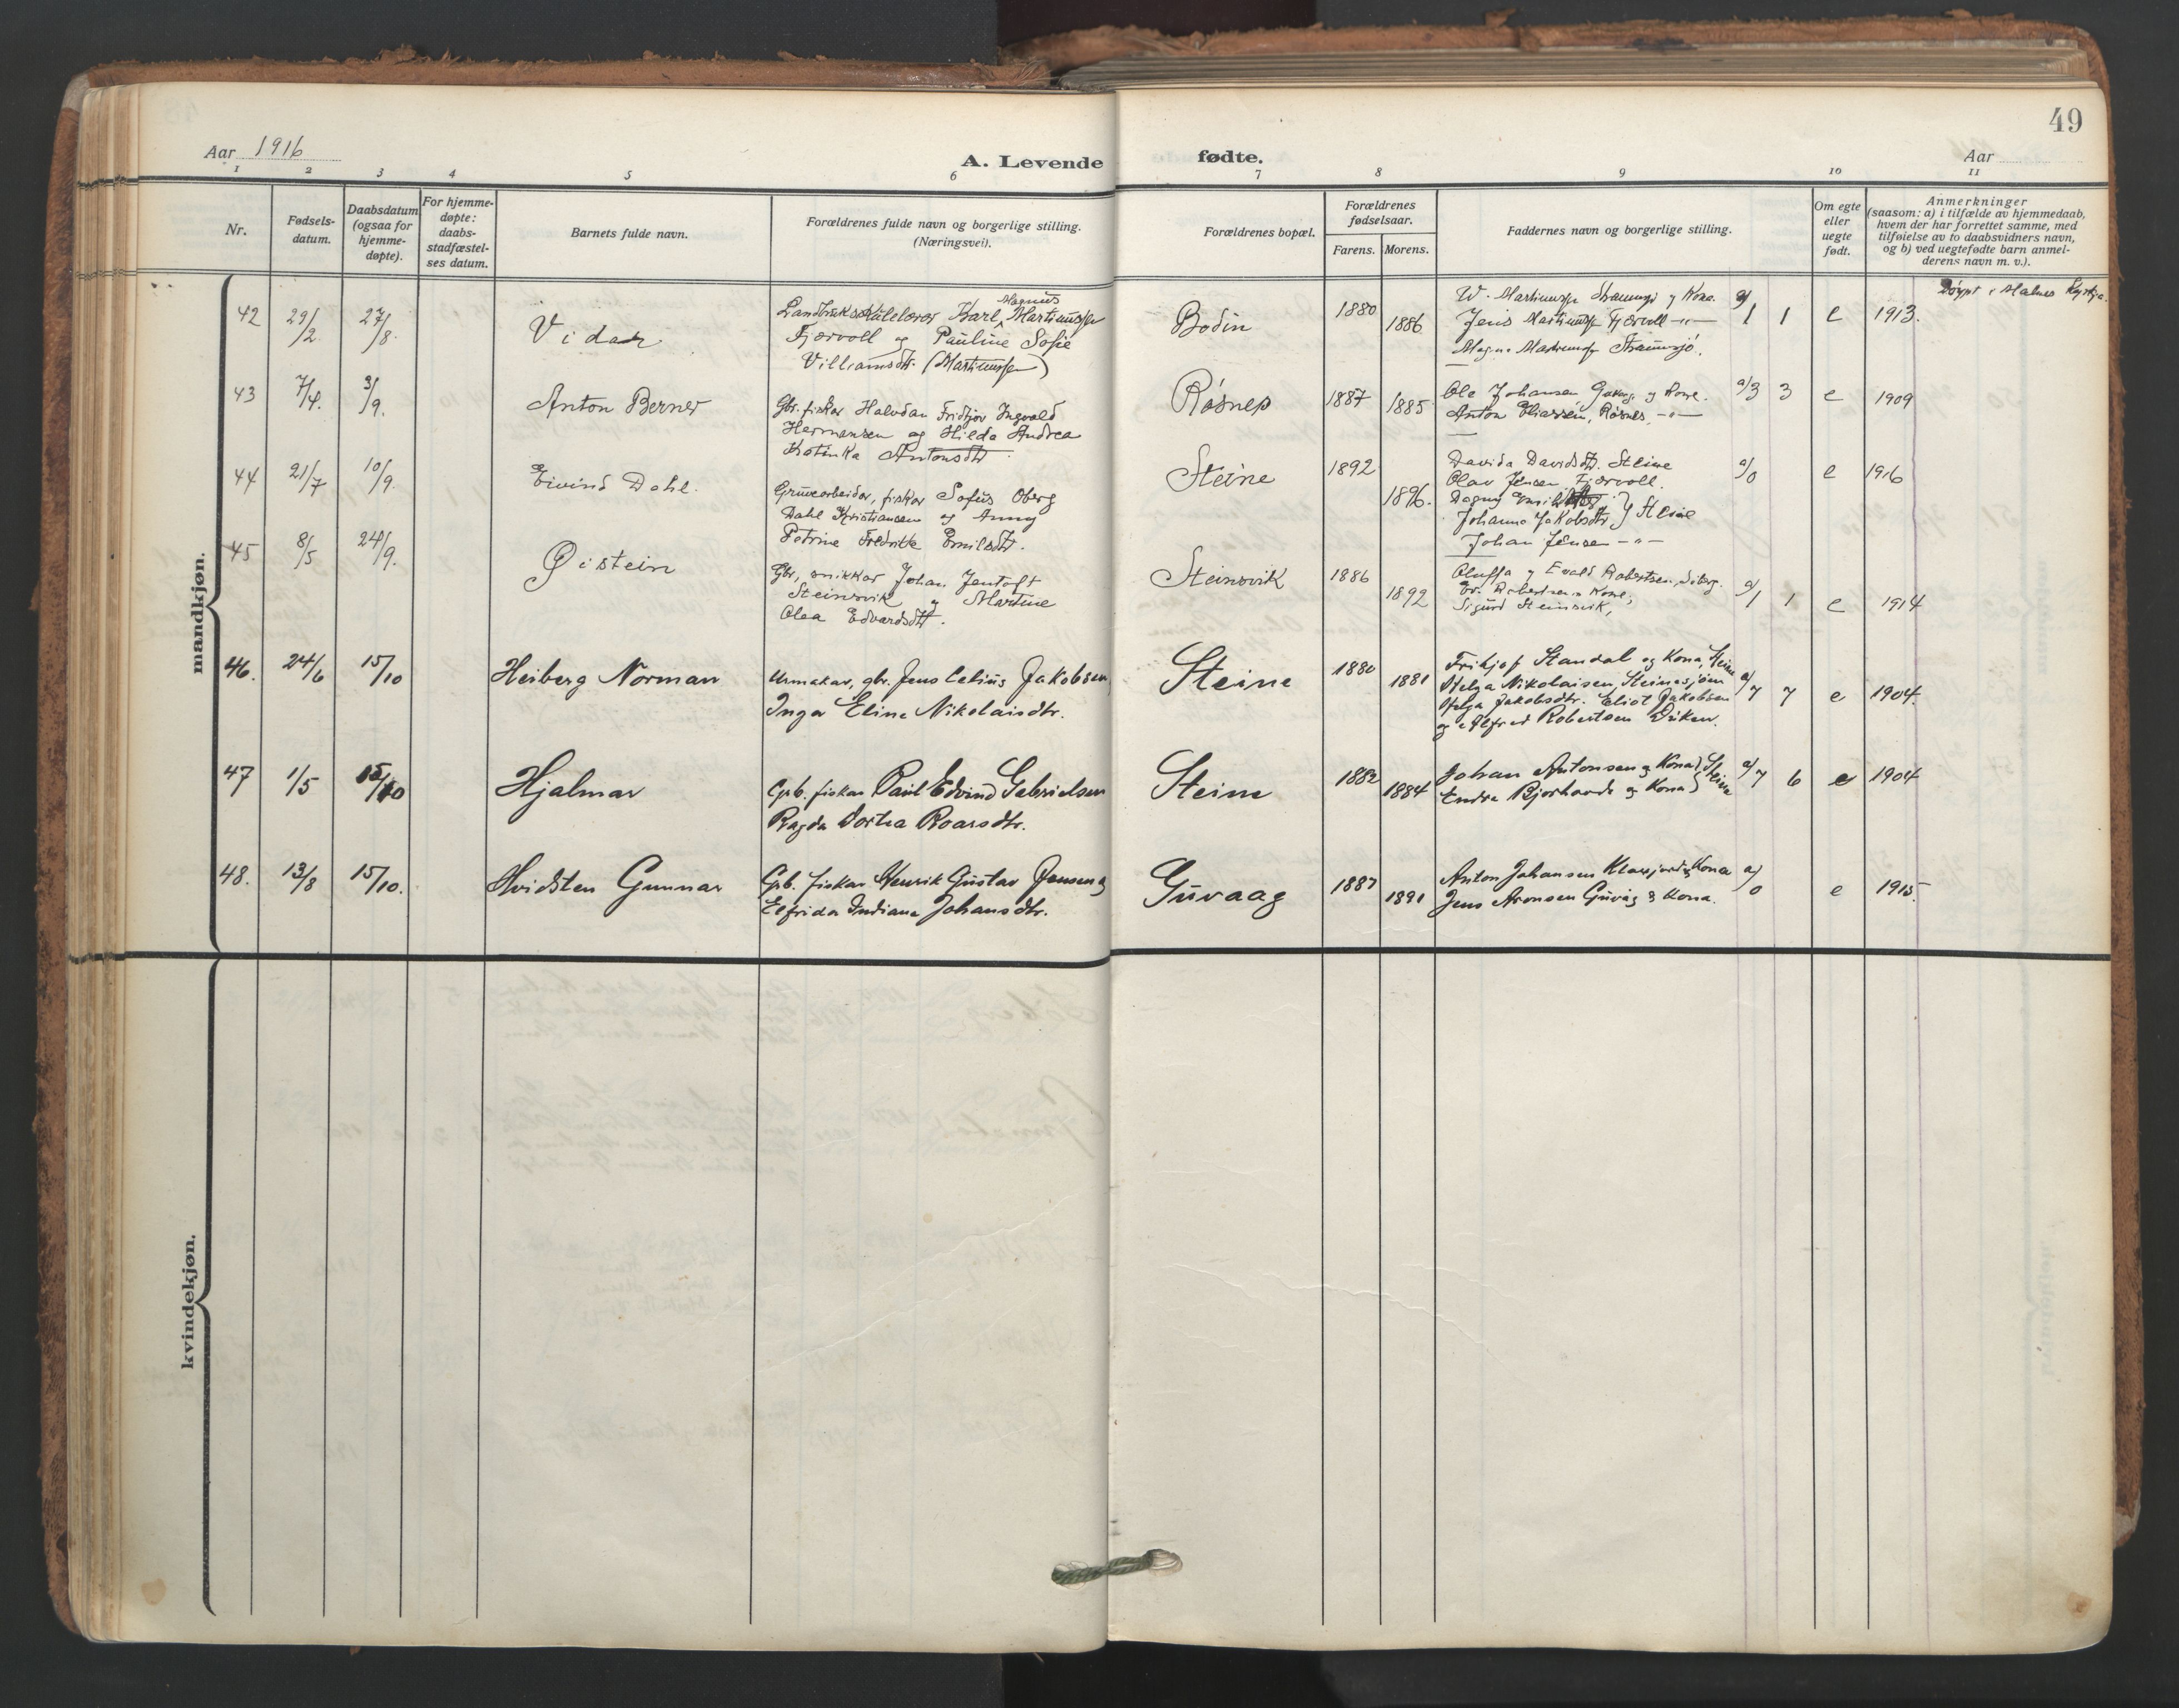 49
Aar 1916
A. Levende fødte.
Aar
1 2 3 4 5 6 7 8 9 10 11
Nr.
Fødsels-
datum.
Daabsdatum
(ogsaa for
hjemme-
døpte).
For hjemme-
døpte:
daabs-
stadfæstel-
ses datum.
Barnets fulde navn.
Forældrenes fulde navn og borgerlige stilling.
(Næringsvei).
Forældrenes bopæl.
Forældrenes
fødselsaar.
Farens. Morens.
Faddernes navn og borgerlige stilling.
Om egte
eller
uegte
født.
Anmerkninger
(saasom: a) i tilfælde av hjemmedaab,
hvem der har forrettet samme, med
tilføielse av to daabsvidners navn,
og b) ved uegtefødte barn anmel-
derens navn m. v.).
mandkjøn.
42 29/2 27/8 Vidar
Landbruksskulelærer Karl Magnus Martinussen
Fjærvoll og Pauline Sofie
Villiamsdtr. (Martinussen)
Bodin 1880 1886
W. Martinussen Straumsjö og Kona.
Jens Martinussen Fjærvoll -"-
Magna Martinussen Straumsjö.
a/1 1 e 1913.
Döypt i Malnes Kyrkja.
43 7/4. 3/9. Anton Berner
Gbr. fiskar Halvdan Fridtjov Ingvald
Hermansen og Hilda Andrea
Katinka Antonsdtr.
Røsnes 1887 1885
Ole Johansen Guvåg. og Kone.
Anton Eliassen, Røsnes, -"-
a/3 3 e 1909
44 21/7 10/9. Eivind Dahl.
Gruvearbeidar, fiskar Sofus Oberg
Dahl Kristiansen og Anny
Petrine Fredrikke Emilsdtr.
Steine 1892 1896.
Davida Davidsdtr. Steine
Olav Jensen, Fjærvoll.
Dagny Emilsdtr
Johanna Jakobsdtr } Steine
Johan Jensen -"-
a/0 e 1916
45 8/5 24/9. Øistein
Gbr, snikkar Johan Jentoft
Steinsvik og Martine
Olea Edvardsdtr.
Steinsvik 1886 1892
Oluffa og Evald Robertsen,
Ev. Robertsens Kone,
Sigurd Steinsvik,
a/1 1 e 1914
46. 24/6 15/10 Heiberg Norman
Urmakar, gbr. Jens Celius Jakobsen
Inga Eline Nikolaisdtr.
Steine 1880 1881
Frithjof Standal og Kona, Steine
Helga Nikolaisen, Steinesjöen
Helga Jakobsdtr. Eliot Jakobsen
og Alfred Robertsen
a/7 7 e 1904.
47 1/5 15/10 Hjalmar
Grb. fiskar Paul Edvind Gabrielsen
Ragda Dortea Roarsdtr.
Steine 1882 1884
Johan Antonsen og Kona } Steine
Endre Bjorhovde og Kona
a/7 6 e 1904
48. 13/8 15/10. Hvidsten Gunnar
Grb. fiskar Henrik Gustav Jensen og
Elfrida Indiana Johansdtr.
Guvaag 1887 1891
Anton Johansen Klaxjord og Kona
Jens Aronsen Guvåg & Kona.
a/0 e 1915.
kvindekjøn.